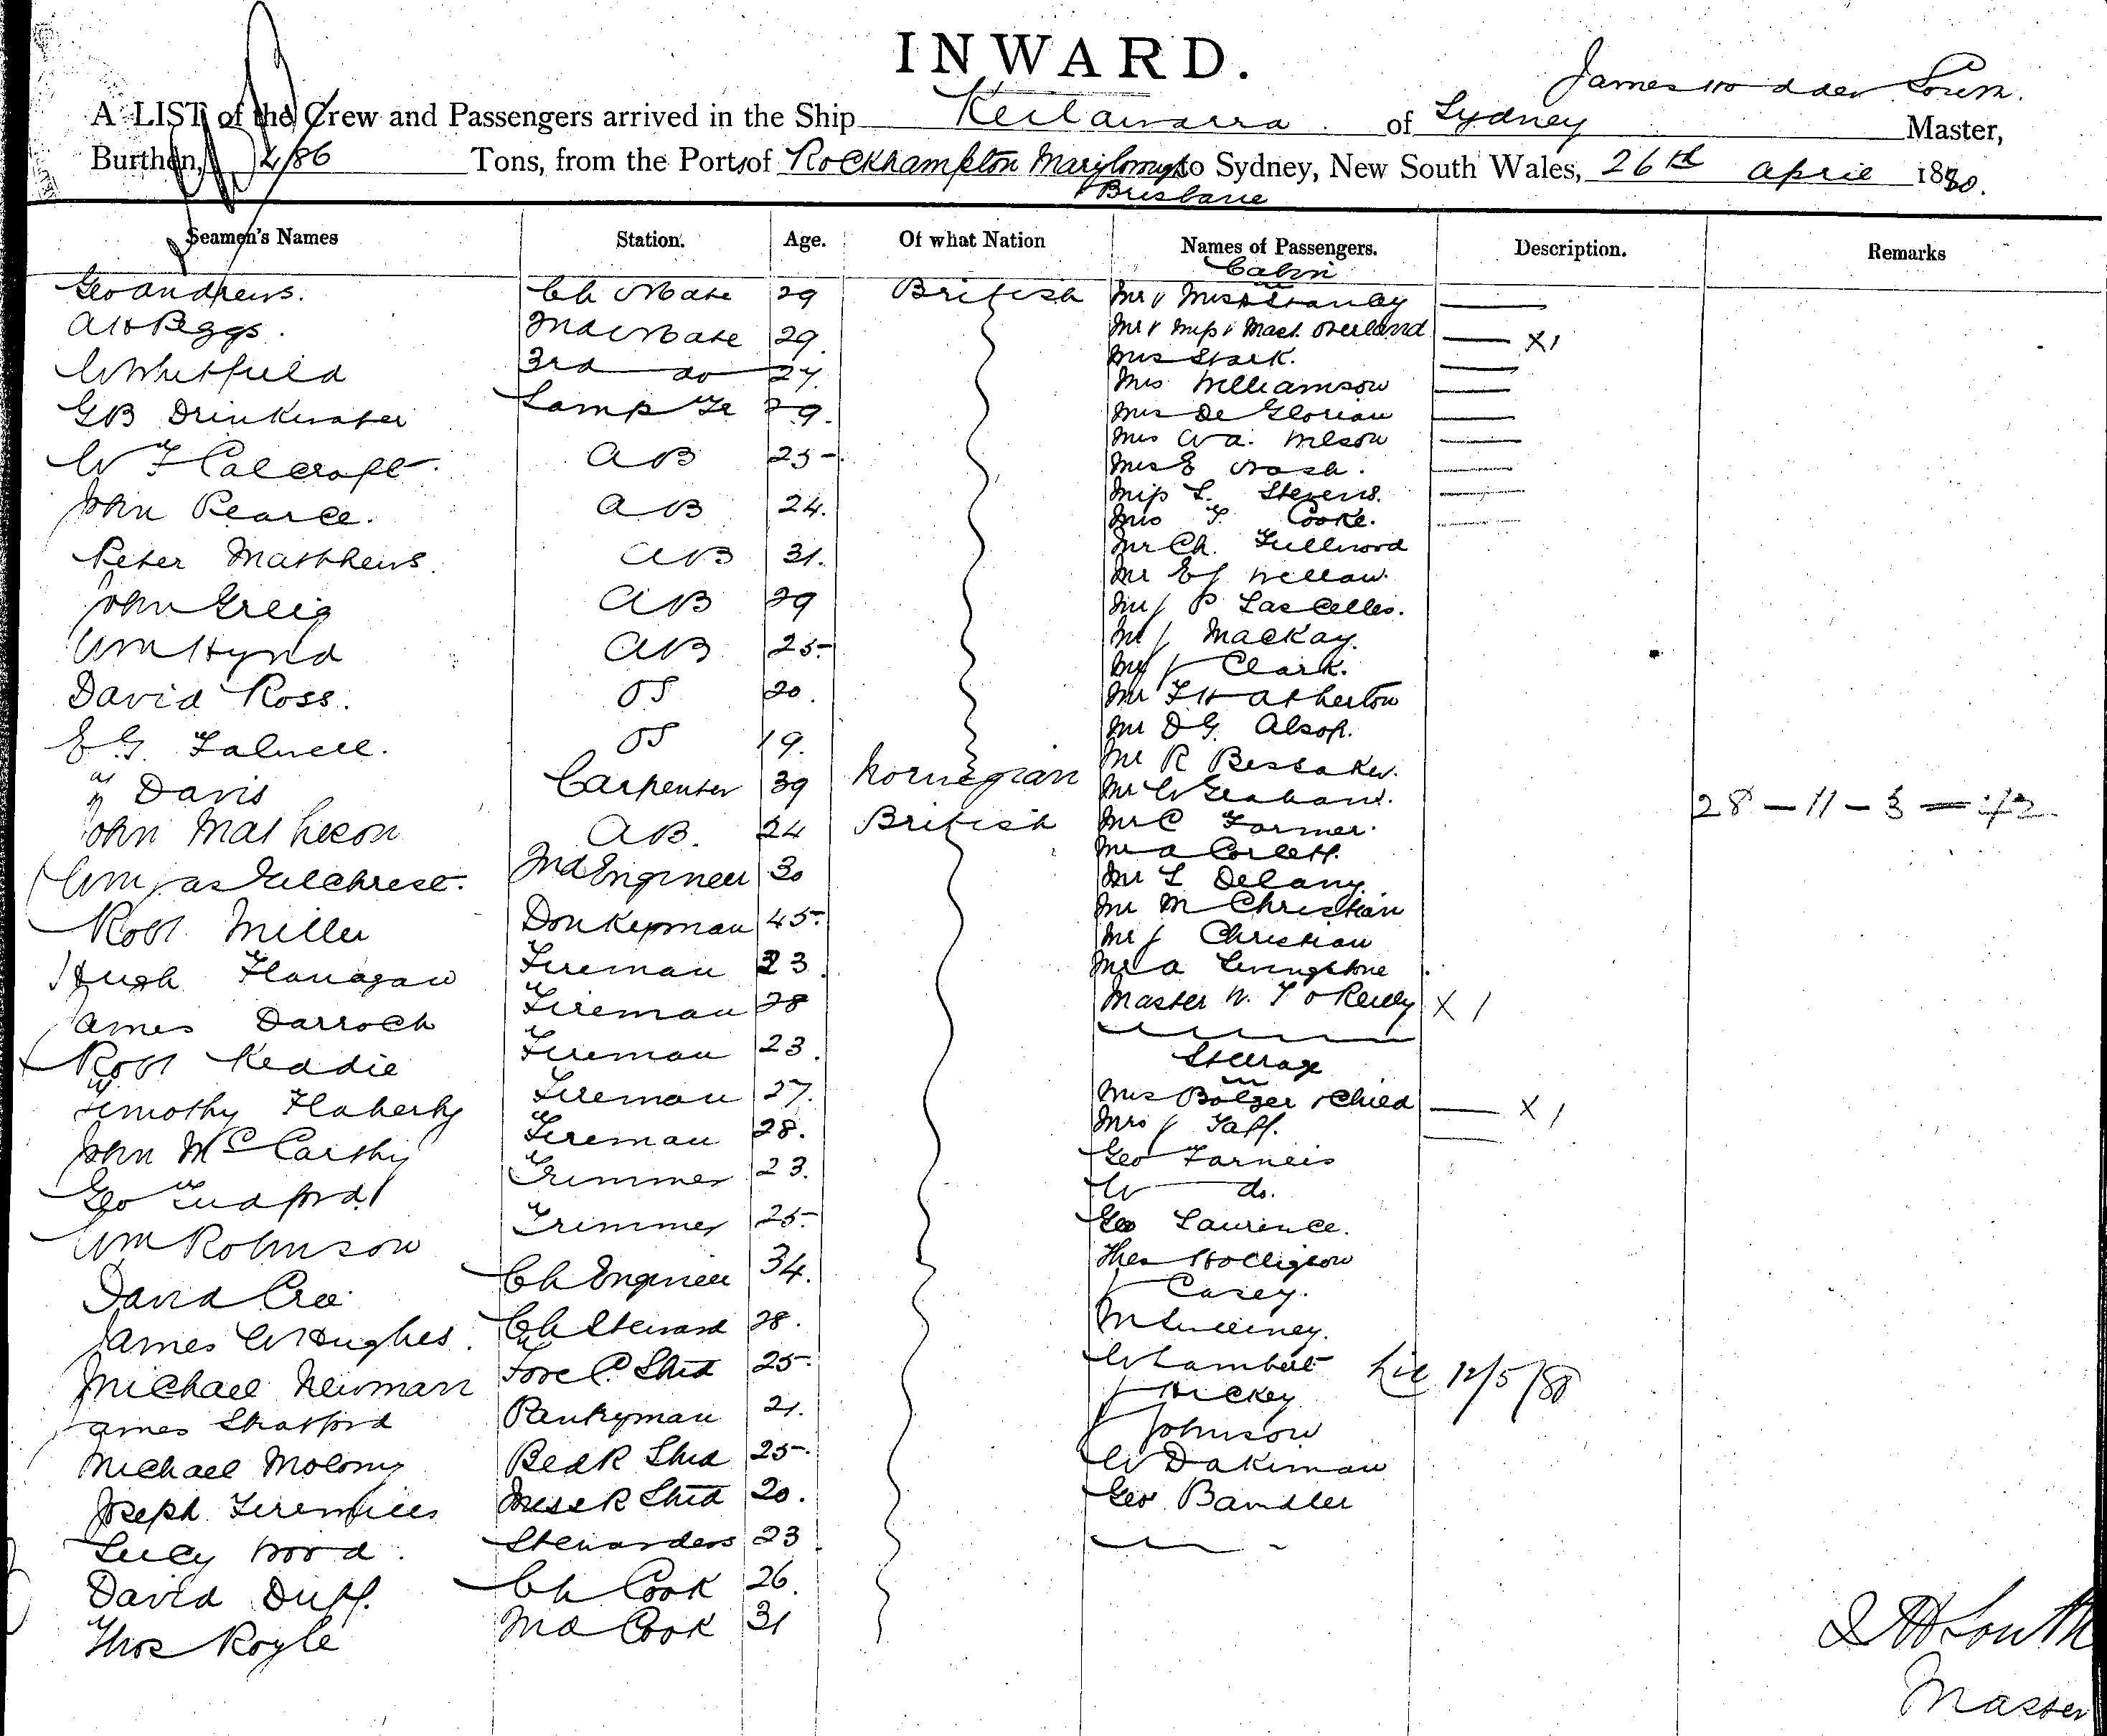 INWARD.
James South.
A LIST of the Crew and Passengers arrived in the Ship Keilawarra of Sydney Master,
Burthen, 486 Tons, from the Ports of Rockhampton Maryborough to Sydney, New South Wales, 26th April 1880.
Brisbane
Seamen's Names Station. Age. Of what Nation Names of Passengers. Description. Remarks
Cabin
Geo Andrews. Ch Mate 29 British Mr & Mrs Stanley
AH Beggs. 2nd Mate 29. Mr & Mrs & Mast. Overland X1
W Whitfield 3rd do 27. Mrs Stark.
GB Drinkwater Lamp Tr 29. Mrs Williamson
Mrs De Glorian
W F Calcroft. AB 25 Mrs W A. Wilson
Mrs E Nash.
John Pearce. AB 24. Miss L. Stevens.
Mrs F. Cooke.
Peter Matthews. AB 31. Mr Ch. Fullwood
Mr EJ Wellan.
John Greig AB 29 Mr J P Lascelles.
Wm Hynd AB 25 Mr J Mackay.
Mr J Clark.
David Ross. OS 20. Mr F H Atherton
Mr D G. Alsop.
E G. Falwell. OS 19. Mr R Bessaker.
J Davis Carpenter 39 Norwegian Mr W Graham.
28 - 11 - 3 = 42
John Matheson AB. 24 British Mr C Farmer.
Mr A Corlett.
Wm Jas Gilchrist. 2nd Engineer 30 Mr L Delany.
Mr M Christian
Robt. Miller Donkeyman 45. Mr J Christian
Hugh Flanagan Fireman 23. Mr A Livingstone
James Darroch Fireman 28 Master W. F O'Reilly X 1
Robt Keddie Fireman 23. Steerage
Timothy Flaherty Fireman 27. Mrs Bolger & Child X 1
John McCarthy Fireman 28. Mrs J Taff.
Geo Tudford Trimmer 23. Geo Farneis
W do.
Wm Robinson Trimmer 25. Geo Laurence.
David Cree Ch Engineer 34. Thos Holligson
J Casey.
James W Hughes. Ch Steward 28. M Sweeney.
Michael Newman Fore C. Stwd 25. W Lambert
12/5/80
J Hickey
James Stratford Pantryman 21. J Johnson
Michael Molony Bed R Stwd 25. W Dakiman
Joseph Stwd 20. Geo. Bandler
Lucy Wood. Stewardess 23
David Duff. Ch Cook 26.
Thos Royle 2nd Cook 31
J W South
Master